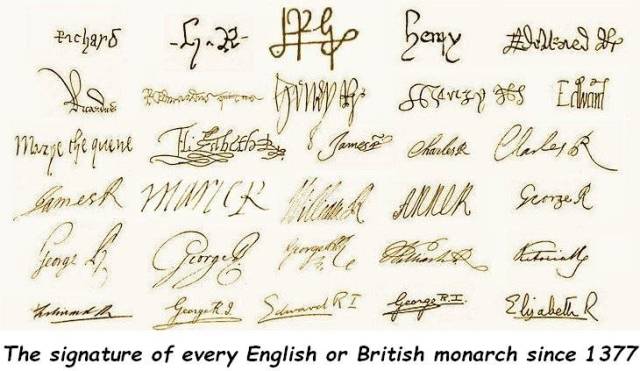 Richard henry
Ricardus Edward
Marye the quene Elizabeth James Charles R Charles R
James R MARIE R William R ANNE R George R
George R George R George R William R Victoria R
Edward R George R I Edward R I George R.I. Elizabeth R
The signature of every English or British monarch since 1377